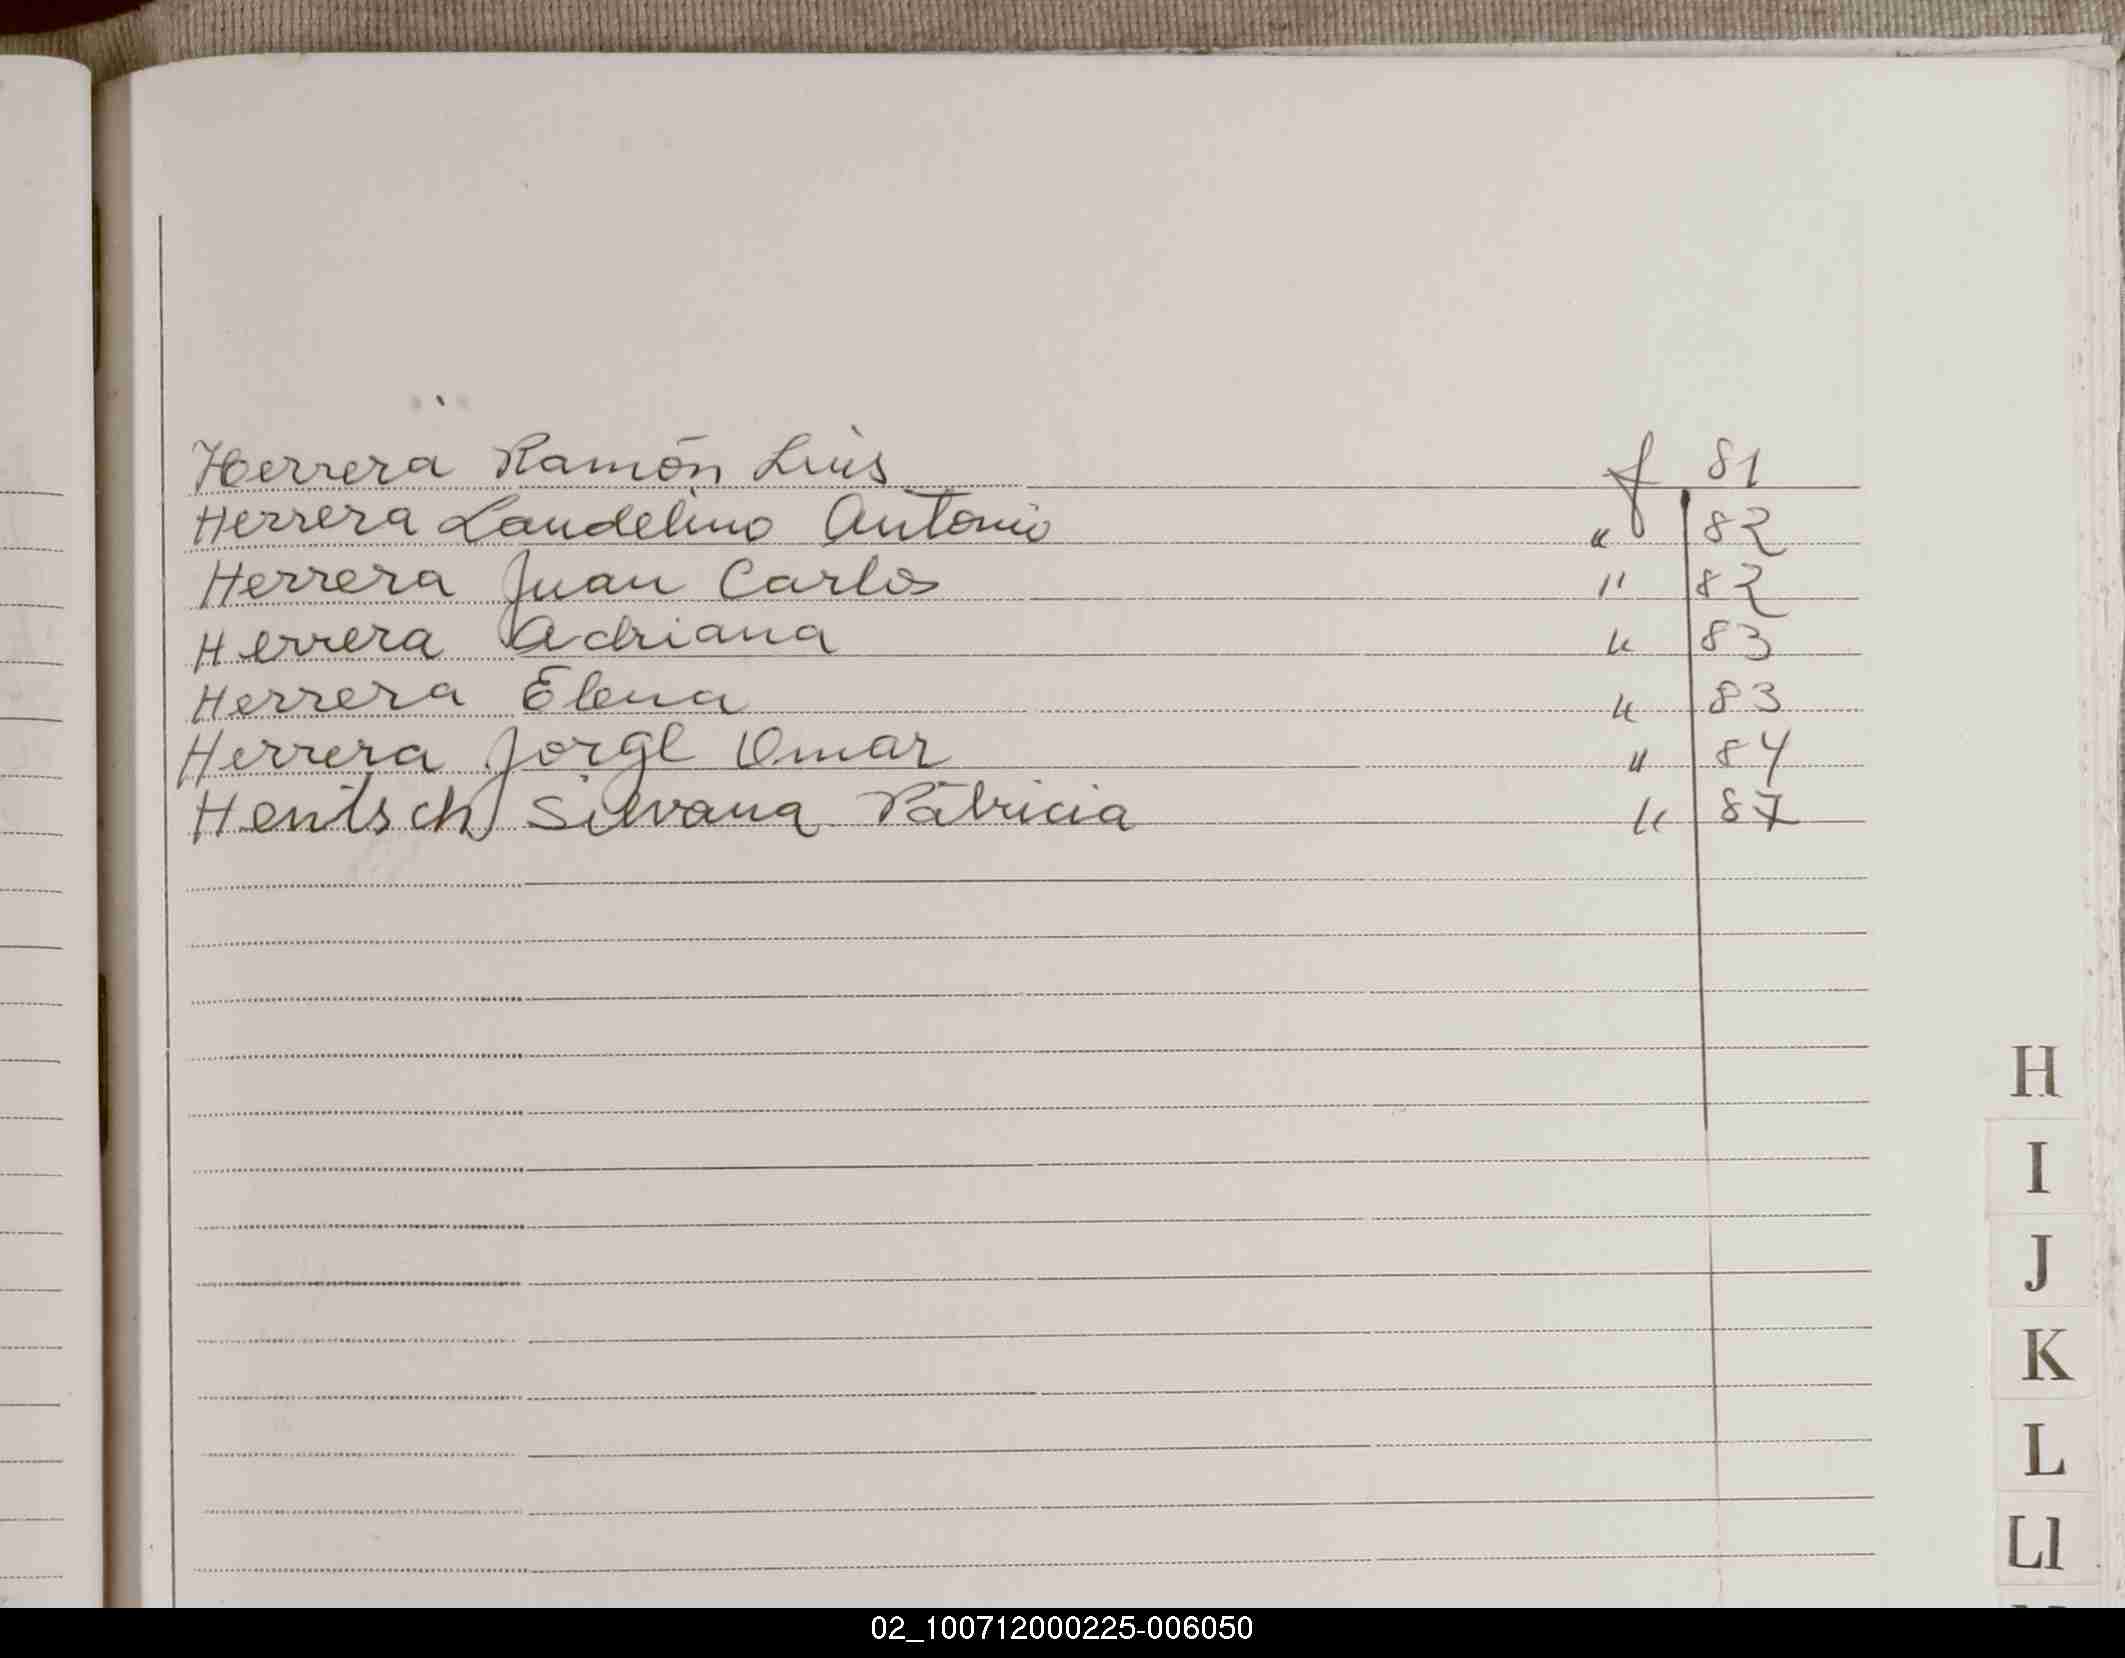 Herrera Ramón Luis f 81
Herrera Laudelino Antonio " 82
Herrera Juan Carlos " 82
Herrera Adriana " 83
Herrera Elena " 83
Herrera Jorge Omar " 84
Hentsch Silvana Patricia " 87
H
I
J
K
L
Ll
02_100712000225-006050